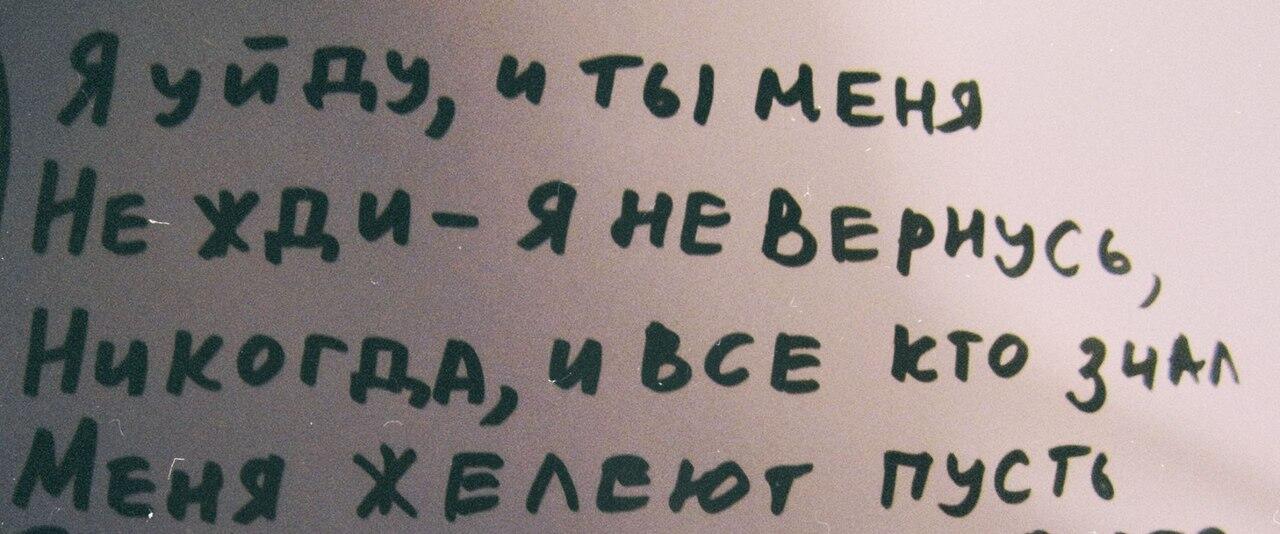 Я уйду, и ты меня
Не жди - я не вернусь,
Никогда, и все кто знал
Меня желеют пусть